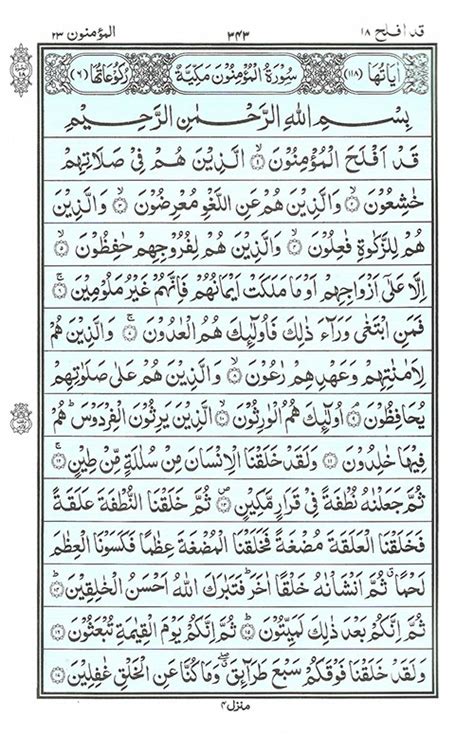 قد افلح ١٨ ٣٤٣ المؤمنون ٢٣
اٰيَاتُهَا (١١٨) سُوْرَةُ الْمُؤْمِنُوْنَ مَكِّيَّةٌ رُكُوْعَاتُهَا (٦)
بِسْمِ اللّٰهِ الرَّحْمٰنِ الرَّحِيْمِ
قَدْ اَفْلَحَ الْمُؤْمِنُوْنَ ۙ﴿١﴾ الَّذِيْنَ هُمْ فِيْ صَلَاتِهِمْ
خٰشِعُوْنَ ۙ﴿٢﴾ وَالَّذِيْنَ هُمْ عَنِ اللَّغْوِ مُعْرِضُوْنَ ۙ﴿٣﴾ وَالَّذِيْنَ
هُمْ لِلزَّكٰوةِ فٰعِلُوْنَ ۙ﴿٤﴾ وَالَّذِيْنَ هُمْ لِفُرُوْجِهِمْ حٰفِظُوْنَ ۙ﴿٥﴾
اِلَّا عَلٰٓى اَزْوَاجِهِمْ اَوْ مَا مَلَكَتْ اَيْمَانُهُمْ فَاِنَّهُمْ غَيْرُ مَلُوْمِيْنَ ۚ﴿٦﴾
فَمَنِ ابْتَغٰى وَرَآءَ ذٰلِكَ فَاُولٰٓئِكَ هُمُ الْعٰدُوْنَ ۚ﴿٧﴾ وَالَّذِيْنَ هُمْ
لِاَمٰنٰتِهِمْ وَعَهْدِهِمْ رٰعُوْنَ ۙ﴿٨﴾ وَالَّذِيْنَ هُمْ عَلٰى صَلَوٰتِهِمْ
يُحَافِظُوْنَ ۘ﴿٩﴾ اُولٰٓئِكَ هُمُ الْوٰرِثُوْنَ ۙ﴿١٠﴾ الَّذِيْنَ يَرِثُوْنَ الْفِرْدَوْسَ ؕ هُمْ
فِيْهَا خٰلِدُوْنَ ﴿١١﴾ وَلَقَدْ خَلَقْنَا الْاِنْسَانَ مِنْ سُلٰلَةٍ مِّنْ طِيْنٍ ۚ﴿١٢﴾
ثُمَّ جَعَلْنٰهُ نُطْفَةً فِيْ قَرَارٍ مَّكِيْنٍ ۪﴿١٣﴾ ثُمَّ خَلَقْنَا النُّطْفَةَ عَلَقَةً
فَخَلَقْنَا الْعَلَقَةَ مُضْغَةً فَخَلَقْنَا الْمُضْغَةَ عِظٰمًا فَكَسَوْنَا الْعِظٰمَ
لَحْمًا ۗ ثُمَّ اَنْشَاْنٰهُ خَلْقًا اٰخَرَ ؕ فَتَبٰرَكَ اللّٰهُ اَحْسَنُ الْخٰلِقِيْنَ ؕ﴿١٤﴾
ثُمَّ اِنَّكُمْ بَعْدَ ذٰلِكَ لَمَيِّتُوْنَ ؕ﴿١٥﴾ ثُمَّ اِنَّكُمْ يَوْمَ الْقِيٰمَةِ تُبْعَثُوْنَ ﴿١٦﴾
وَلَقَدْ خَلَقْنَا فَوْقَكُمْ سَبْعَ طَرَآئِقَ ۖ وَمَا كُنَّا عَنِ الْخَلْقِ غٰفِلِيْنَ ﴿١٧﴾
منزل ٤